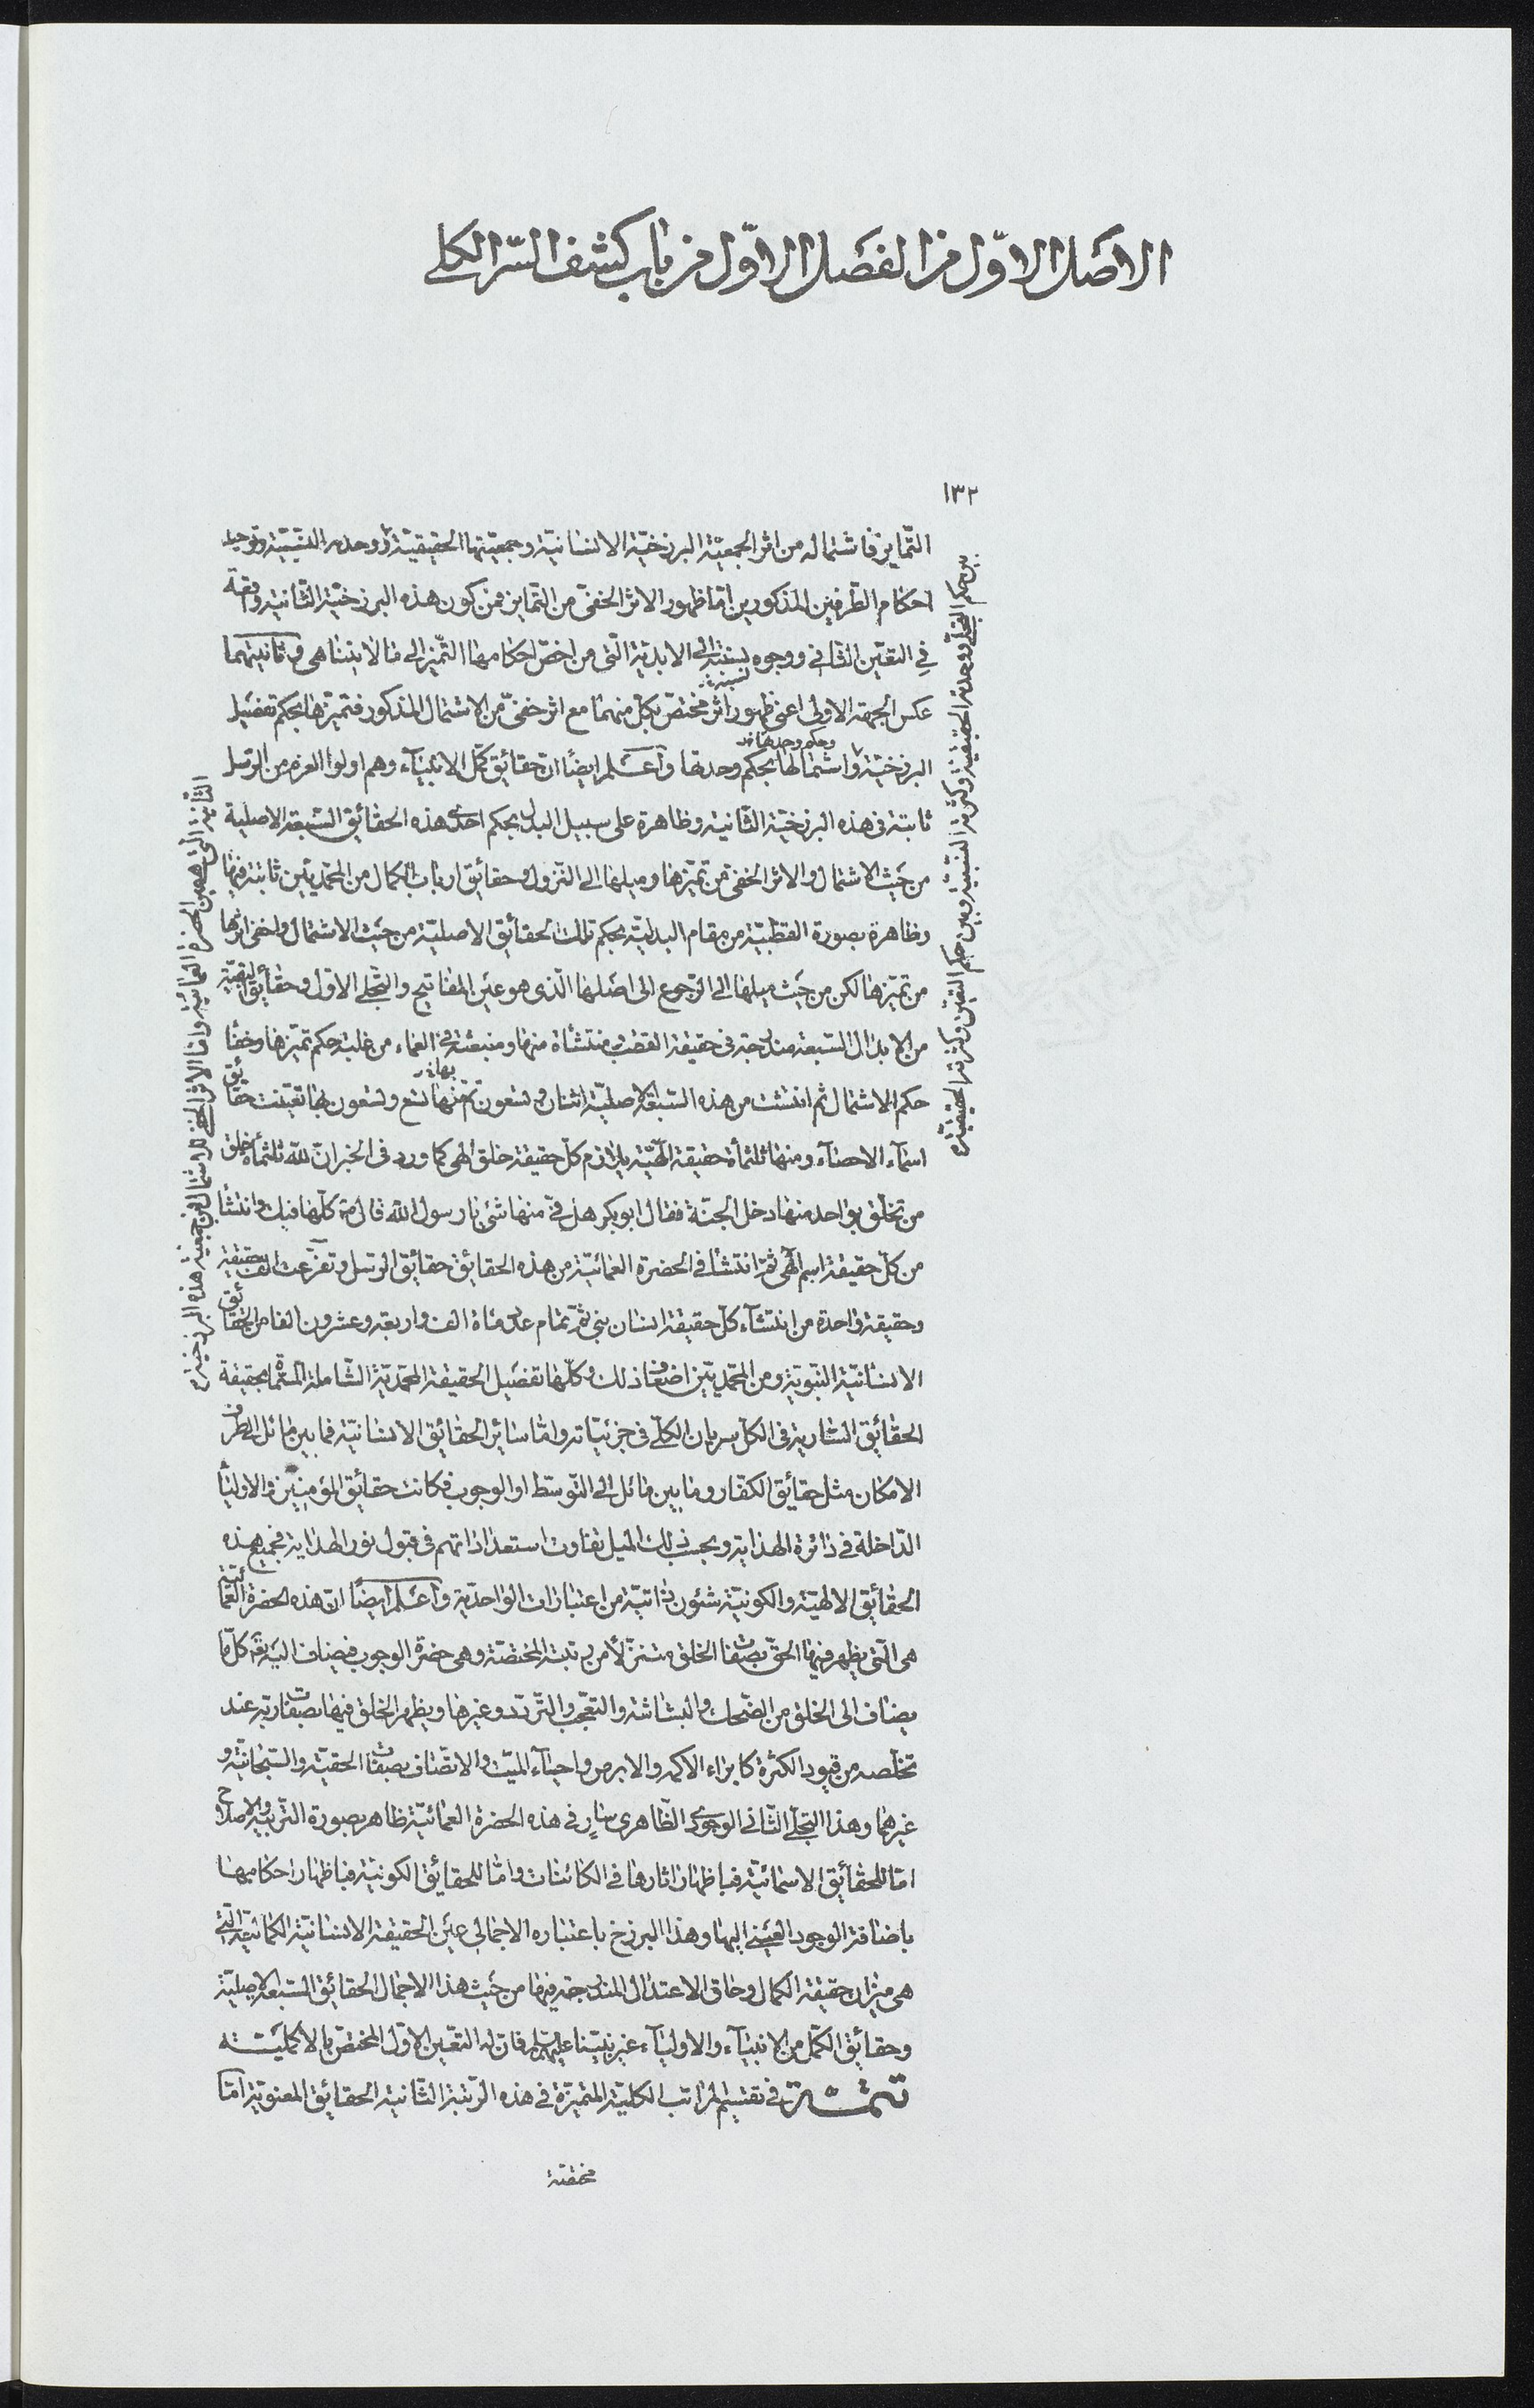 الاصل الاوّل من الفصل الاوّل من باب كشف السّر الكلي
١٣٢
التّمايز فاشتماله من اثر الجمعيّة البرزخيّة الانسانيّة وجمعيّتها الحقيقيّة و وحدته النسبيّة وتوحيد
احكام الطّرفين المذكورين امّا ظهور الاثر الخفىّ من التّمايز فمن كون هذه البرزخيّة الثّانية واقعة
فى التعيّن الثّانى ووجوه نسبته الى الابديّة الّتى من اخصّ احكامها التّميّز الى مالا يتناهى وثانيتهما
نسبة
عكس الجهة الاولى اعنى ظهور اثر مختصّ بكلّ منهما مع اثر خفىّ من الاشتمال المذكور فتميّزها بحكم تفصيل
وحكم وحدتها
البرزخيّة واشتمالها بحكم وحدتها واعلم ايضًا انّ حقائق كمّل الانبياء وهم اولوا العزم من الرّسل
ثابتة فى هذه البرزخيّة الثّانية وظاهرة على سبيل البدل بحكم احدى هذه الحقائق السّبعة الاصلية
من حيث الاشتمال والاثر الخفى من تميّزها وميلها الى النزول وحقائق ارباب الكمال من المحمّديّين ثابتة فيها
وظاهرة بصورة القطبيّة من مقام البدليّة بحكم تلك الحقائق الاصليّة من حيث الاشتمال واخفى اثرها
من تميّزها لكن من حيث ميلها الى الرّجوع الى اصلها الّذى هو عين المفاتيح والتجلّى الاوّل وحقائق بقيّة
من الابدال السّبعة مندرجة فى حقيقة القطب منتشأة منها ومنبعثة فى العماء من غلبة حكم تميّزها وخفا
بها
حكم الاشتمال ثم انتشت من هذه السّبعة الاصليّة اثنان وتسعون تمّ منها تسع وتسعون بها تعيّنت حقائق
اسمآء الاحصآء ومنها ثلثمأة حقيقة الهيّة يلازم كلّ حقيقة خلق الهى كما ورد فى الخبر انّ لله ثلثمأة خلق
من تخلّق بواحد منها دخل الجنّة فقال ابو بكر هل فىّ منها شئ يا رسول الله قال كلّها فيك وانتشأ
من كلّ حقيقة اسم الهى ثمّ انتشأ فى الحضرة العمائيّة من هذه الحقائق حقائق الرّسل وتفرّعت الف حقيقة
وحقيقة واحدة من انتشآء كلّ حقيقة انسان نبى ثمّ تمام عدد مأة الف واربعة وعشرون الفا من الحقائق
الانسانيّة النّبويّة ومن المحمّديّين اضعاف ذلك وكلّها تفصيل الحقيقة المحمّديّة الشّاملة المسمّاة بحقيقة
الحقائق السّارية فى الكلّ سريان الكلّى فى جزئيّاته وامّا سائر الحقائق الانسانيّة فما بين مائل الى طرف
الامكان مثل حقايق الكفّار وما بين مائل الى التّوسّط او الوجوب فكانت حقائق المؤمنين والاوليا
الدّاخلة فى دائرة الهداية وبحسب ذلك الميل تفاوت استعداداتهم فى قبول نور الهداية فجميع هذه
الحقائق الالهيّة والكونيّة شئون ذاتيّة من اعتبارات الواحديّة واعلم ايضًا انّ هذه الحضرة العمائيّة
هى الّتى يظهر فيها الحقّ بصفات الخلق متنزّلًا من رتبته المختصّة وهى حضرة الوجوب فيضاف اليه كلّما
يضاف الى الخلق من الضّحك والبشاشة والتعجّب والتّردّد وغيرها ويظهر الخلق فيها بصفات ربّه عند
تخلّصه من قيود الكثرة كابراء الاكمه والابرص واحياء الميّت والاتّصاف بصفات الحقيّة والسّبحانيّة و
غيرهما وهذا التجلّى الثّانى الوجودى الظّاهرى سارٍ فى هذه الحضرة العمائيّة ظاهر بصورة التّربية والاصلاح
امّا للحقائق الاسمائيّة فباظهار اثارها فى الكائنات وامّا للحقائق الكونيّة فباظهار احكامها
باضافة الوجود العينى اليها وهذا البرزخ باعتباره الاجمالى عين الحقيقة الانسانيّة الكماليّة الّتى
هى ميزان حقيقة الكمال وحاق الاعتدال المندرجة فيها من حيث هذا الاجمال الحقائق السّبعة الاصليّة
وحقائق الكمّل من الانبيآء والاوليآء غير نبيّنا عليهم السلم فانّ له التعيّن الاوّل المختصّ بالاكمليّة
تتمّة فى تقسيم المراتب الكليّة المتميّزة فى هذه الرّتبة الثّانية الحقائق المعنويّة امّا
بين حكم التجلّى ووحدته الحقيقيّة وكثرته النّسبيّة وبين حكم التعيّن وكثرته الحقيقيّة
الثّانية الّتى هى عين الحضرة العمائيّة وامّا الاثر الخفى للاشتمال فمن جمعية هذه البرزخية